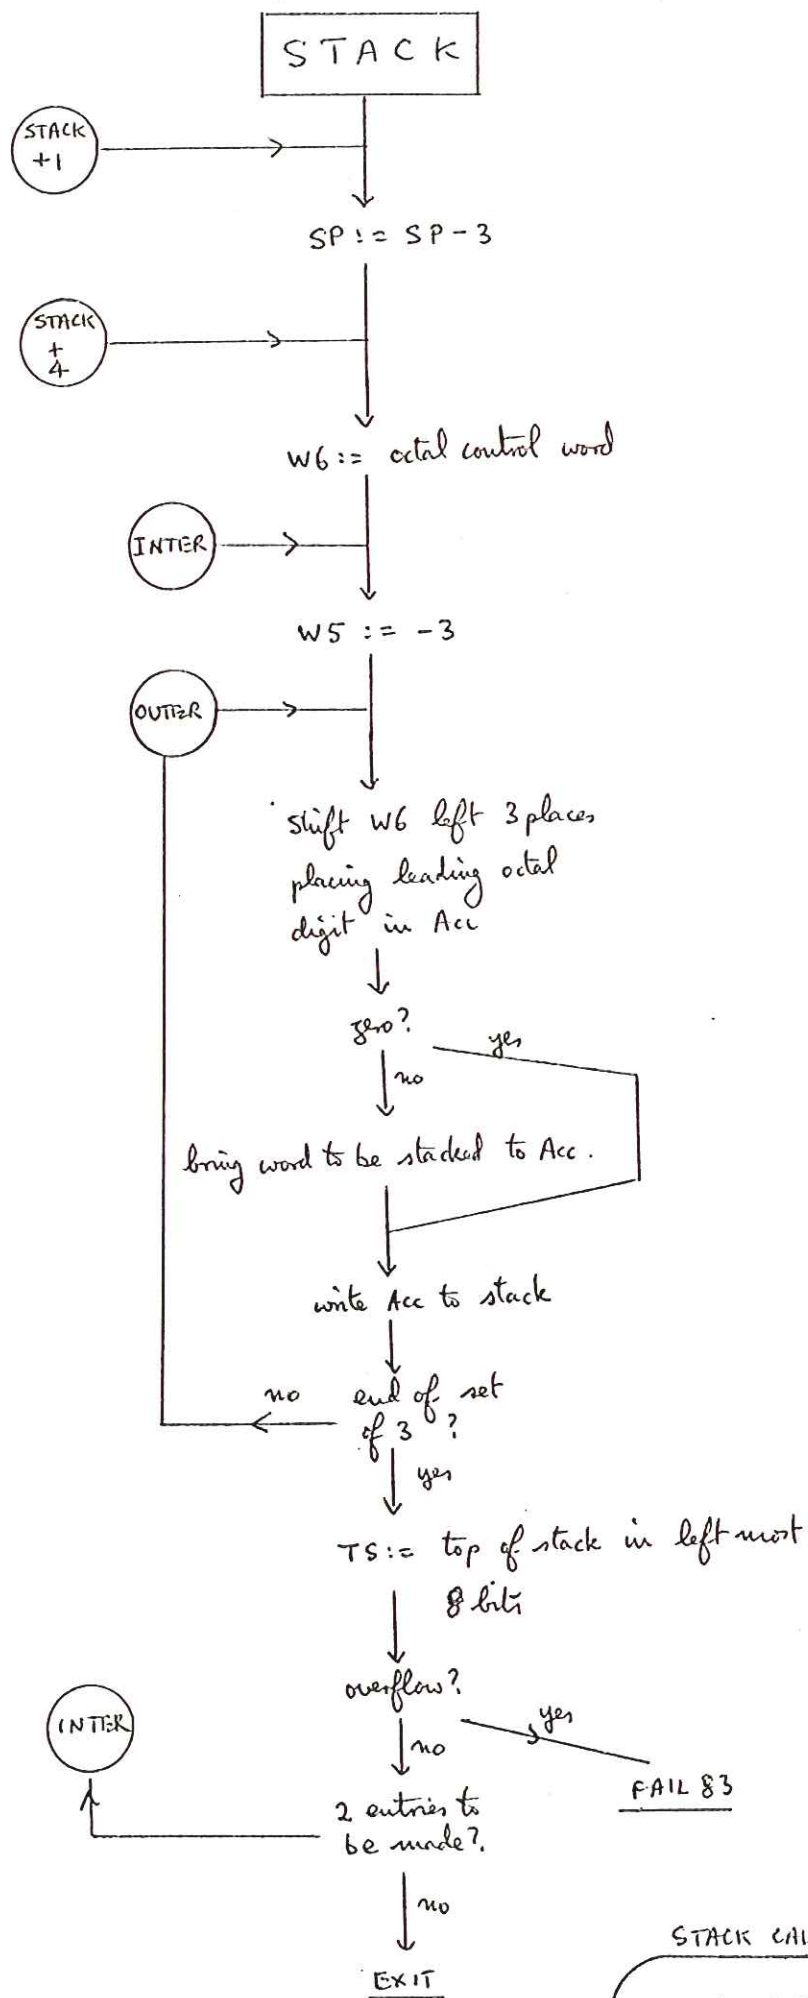 STACK
STACK
+1
SP := SP - 3
STACK
+
4
W6 := octal control word
INTER
W5 := -3
OUTER
Shift W6 left 3 places
placing leading octal
digit in Acc
zero?
yes
no
bring word to be stacked to Acc.
write Acc to stack
no
end of set
of 3 ?
yes
TS := top of stack in left most
8 bits
overflow?
yes
INTER
no
FAIL 83
2 entries to
be made?
no
STACK
EXIT